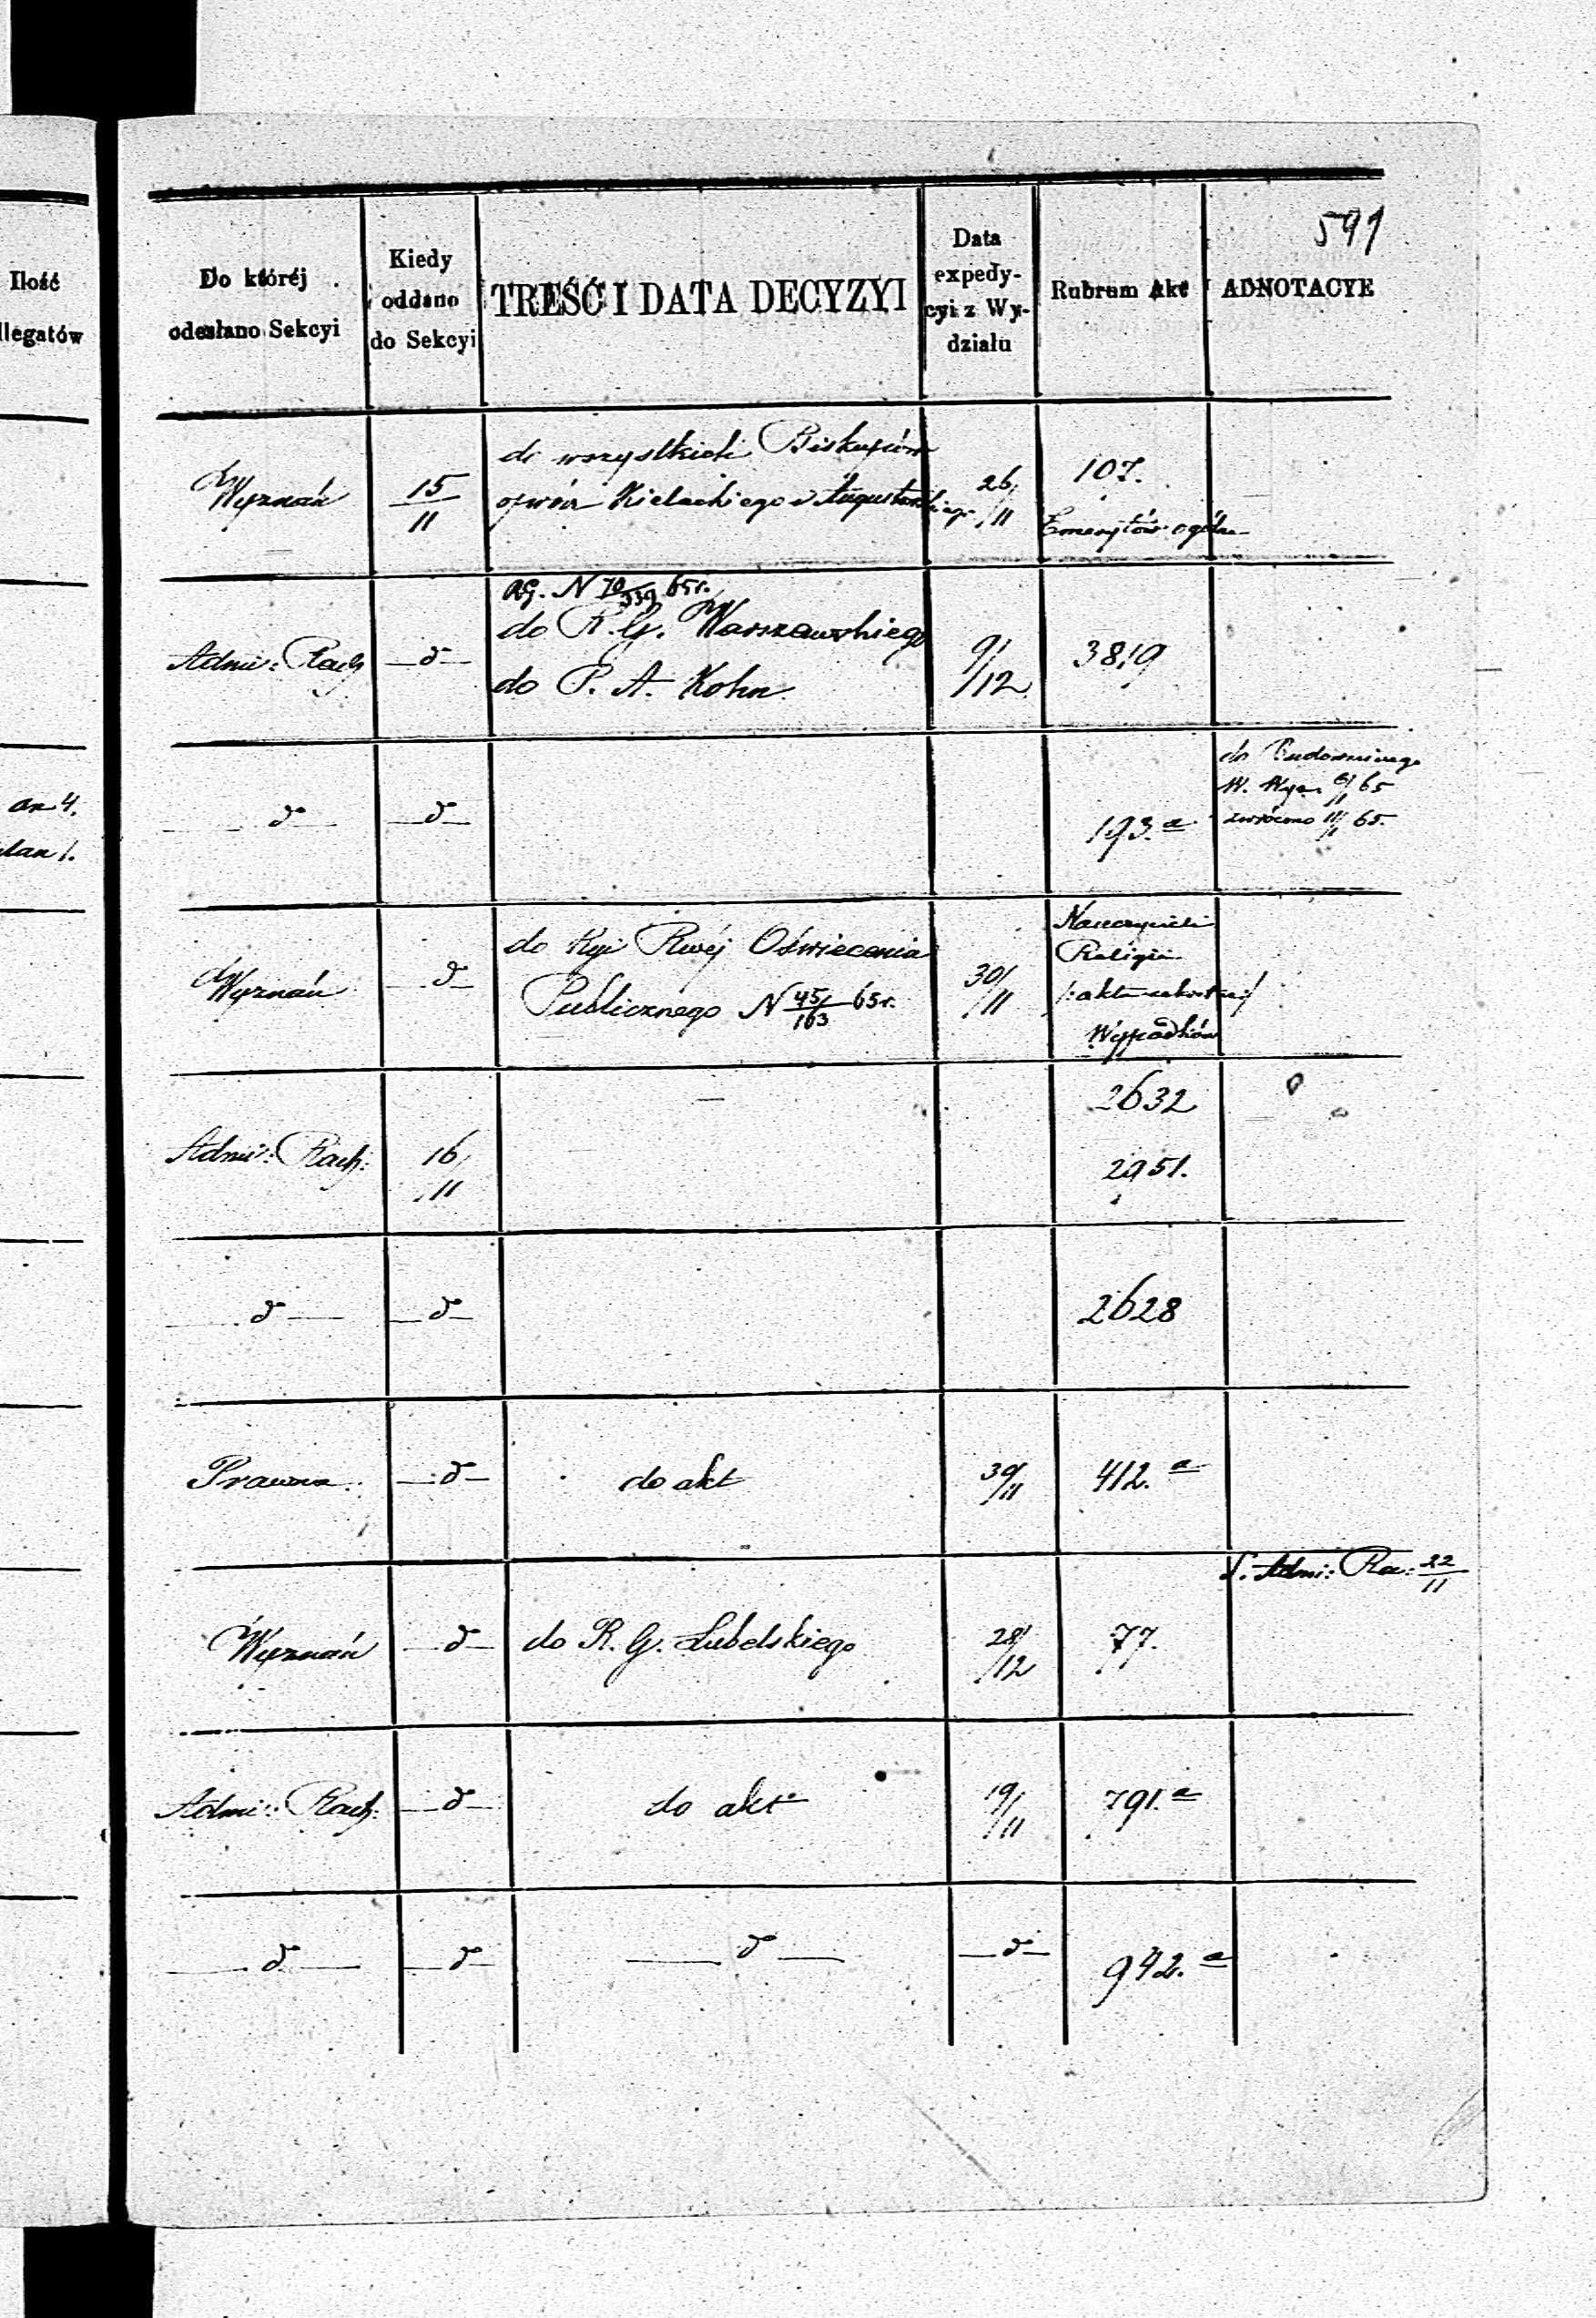 591
Ilość
llegatów
Do któréj
odesłano Sekcyi
Kiedy
oddano
do Sekcyi
TREŚĆ I DATA DECYZYI
Data
expedy-
cyi z Wy-
działu
Rubrum Akt
ADNOTACYE
Wyznań
15/11
do wszystkich Biskupów
oprócz Kieleckiego i Augustowskiego
26/11
107.
Emerytów ogólne
Admi: Rach
—d—
AG. N 70/339 65r.
do R. G. Warszawskiego
do P. A. Kohn.
9/12
3819
an 4.
lan 1.
—d—
—d—
193.a
do Budowniczego
W. Wyz. 6/11 65
zwrócono 11/11 65.
Wyznań
—d—
do Kyi Rwéj Oświecenia
Publicznego N 45/163 65r.
30/11
Nauczycieli
Religii
Wypadków
Admi: Rach:
16/11
2632
2951.
—d—
—d—
2628
Prawna
—d—
do akt
30/11
412.a
S. Admi: Ra: 22/11
Wyznań
—d—
do R. G. Lubelskiego
28/12
77.
Admi: Rach:
—d—
do akt
19/11
791.a
—d—
—d—
—d—
—d—
942.a